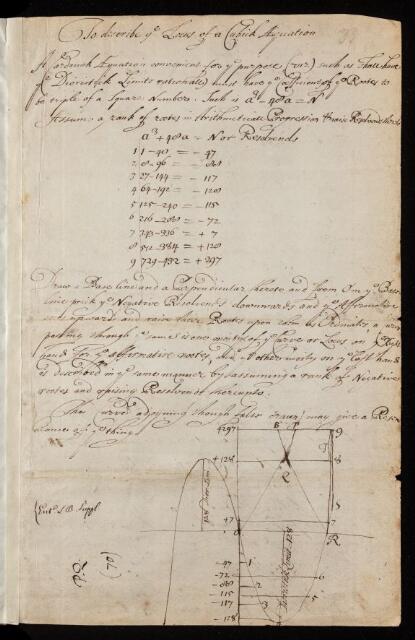 To describe yᵉ Locus of a Cubick Æquation
33
A Cardanick Æquation convenient for yᵉ purpose (viz) such as shall have
yᵉ Dioristick Limits rationall, must have yᵉ Coefficient of yᵉ Rootes to
be triple of a Square Number. Such is a³ - 48a = N
Assume a rank of rootes in Arithmeticall Progression & raise Resolvends thereto
a³ + 48a = N or Resolvends
1 1 - 48 = - 47
2 8 - 96 = - 88
3 27 - 144 = - 117
4 64 - 192 = - 128
5 125 - 240 = - 115
6 216 - 288 = - 72
7 343 - 336 = + 7
8 512 - 384 = + 128
9 729 - 432 = + 297
Draw a Base line and a Perpendicular thereto and from O in yᵉ Base
line prick yᵉ Negative Resolvends downwards and yᵉ Affirmative
ones upward and raise their Rootes upon them as Ordinates a curve
passing through yᵉ same is one moity of yᵉ Curve or Locus on yᵉ Right
hand for yᵉ affirmative rootes, and yᵉ other moity on yᵉ left hand
is described in yᵉ same manner by assuming a rank of Negative
rootes and raising Resolvends thereunto.
The curve adjoyning though false drawn may give a Resem
blance of yᵉ thing
+297 B T 9
+128 8
128
+7 7
O R
(Ent. L B Suppl
-47 1
-72 6
-88 2
-115 5
-117 3
-128
Dioristick Limit 128
(10)